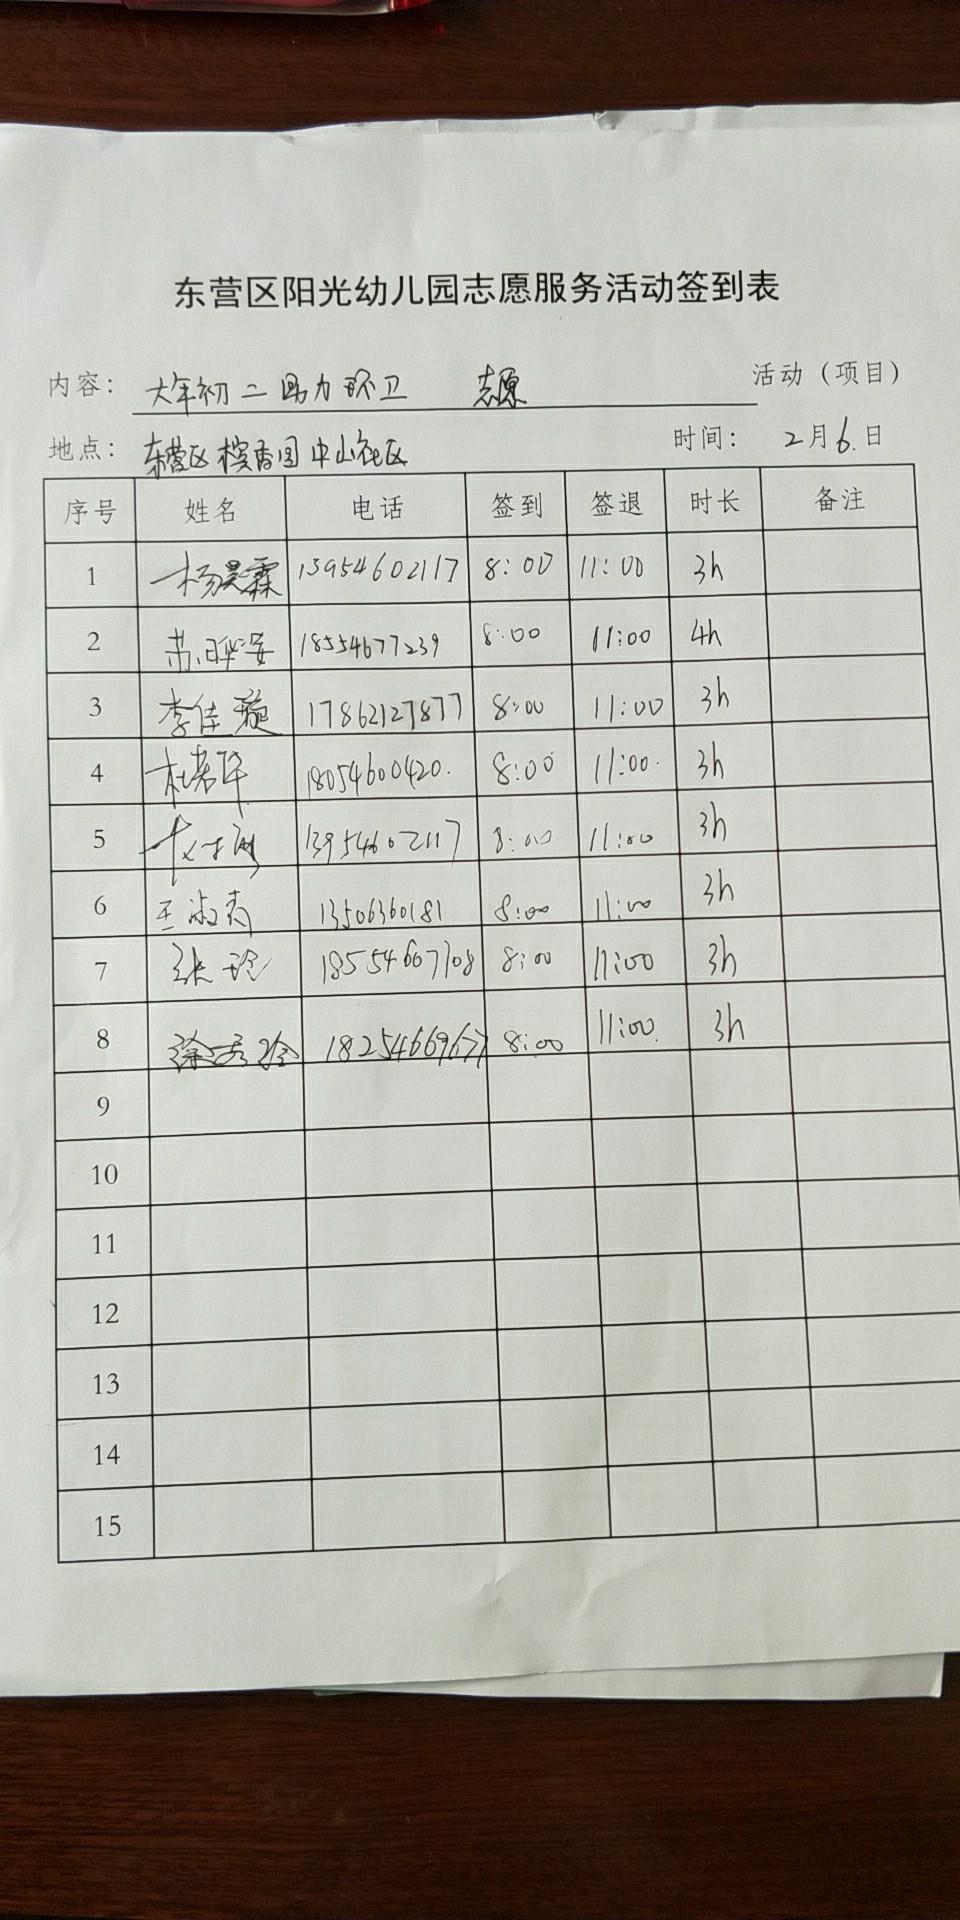 东营区阳光幼儿园志愿服务活动签到表
内容: 大年初二助力环卫 志愿 活动（项目）
地点: 东营区 中山社区 时间: 2月6日
序号 姓名 电话 签到 签退 时长 备注
1 杨昊霖 13954602117 8:00 11:00 3h
2 18554677239 8:00 11:00 4h
3 李佳璇 17862127877 8:00 11:00 3h
4 18054600420. 8:00 11:00. 3h
5 13954602117 8:00 11:00 3h
6 王淑 13506360181 8:00 11:00 3h
7 张玲 18554667108 8:00 11:00 3h
8 徐秀玲 18254669677 8:00 11:00 3h
9
10
11
12
13
14
15